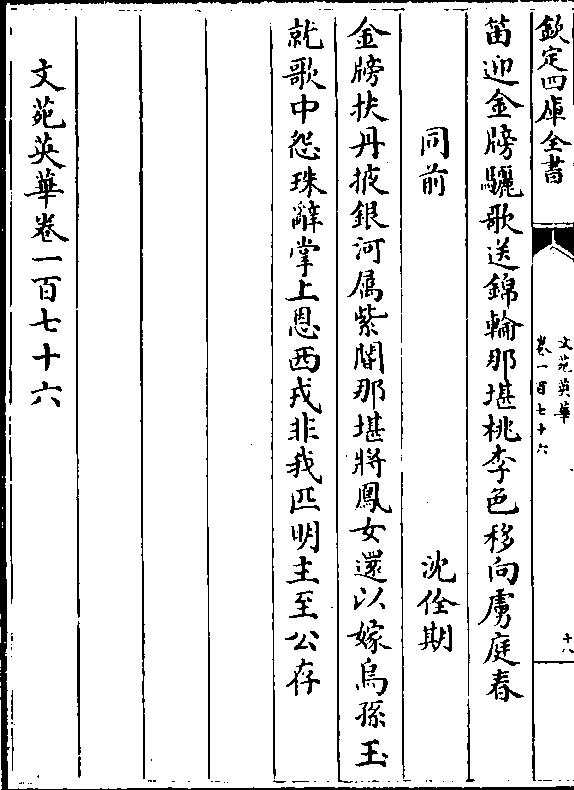 欽定四庫全書
文苑英華
卷一百七十六
十八
茵迎金牓驪歌送錦輪那堪桃李色移向虜庭春
同前
沈佺期
金牓扶丹掖銀河属紫閽那堪將鳳女還以嫁烏孫玉
就歌中怨珠辭掌上恩西戎非我匹明主至公存
文苑英華卷一百七十六